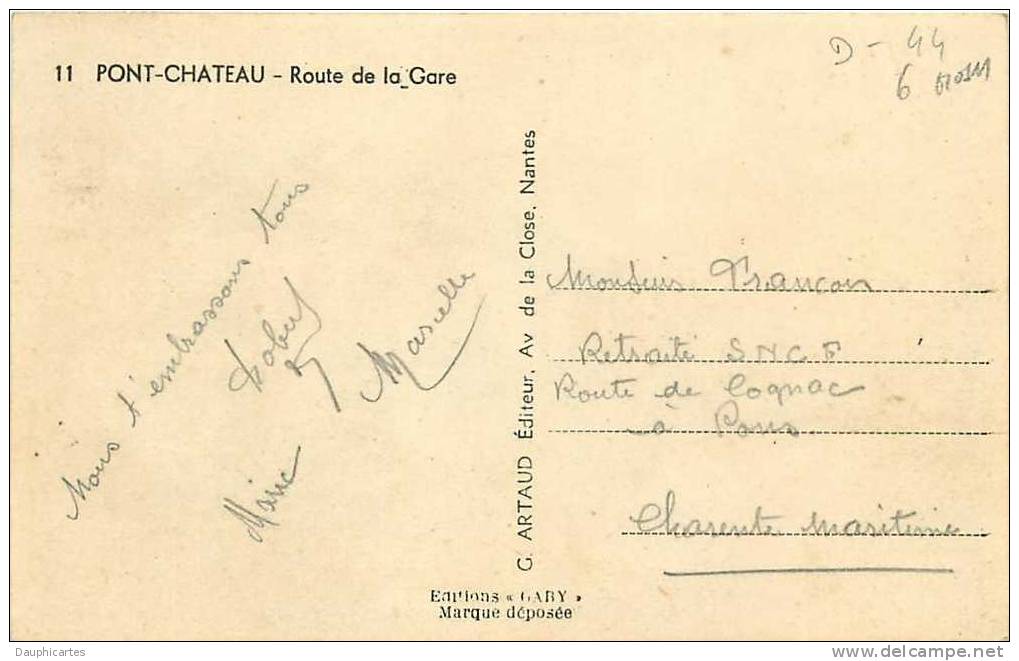 11 PONT-CHATEAU - Route de la Gare
D - 44
6
Nous t'embrassons tous
Robert
Marcelle
Marie
G. ARTAUD Éditeur, Av de la Close, Nantes
Monsieur François
Retraité SNCF
Route de Cognac
à Pons
Charente Maritime
Editions « GABY »
Marque déposée
Dauphicartes
www.delcampe.net